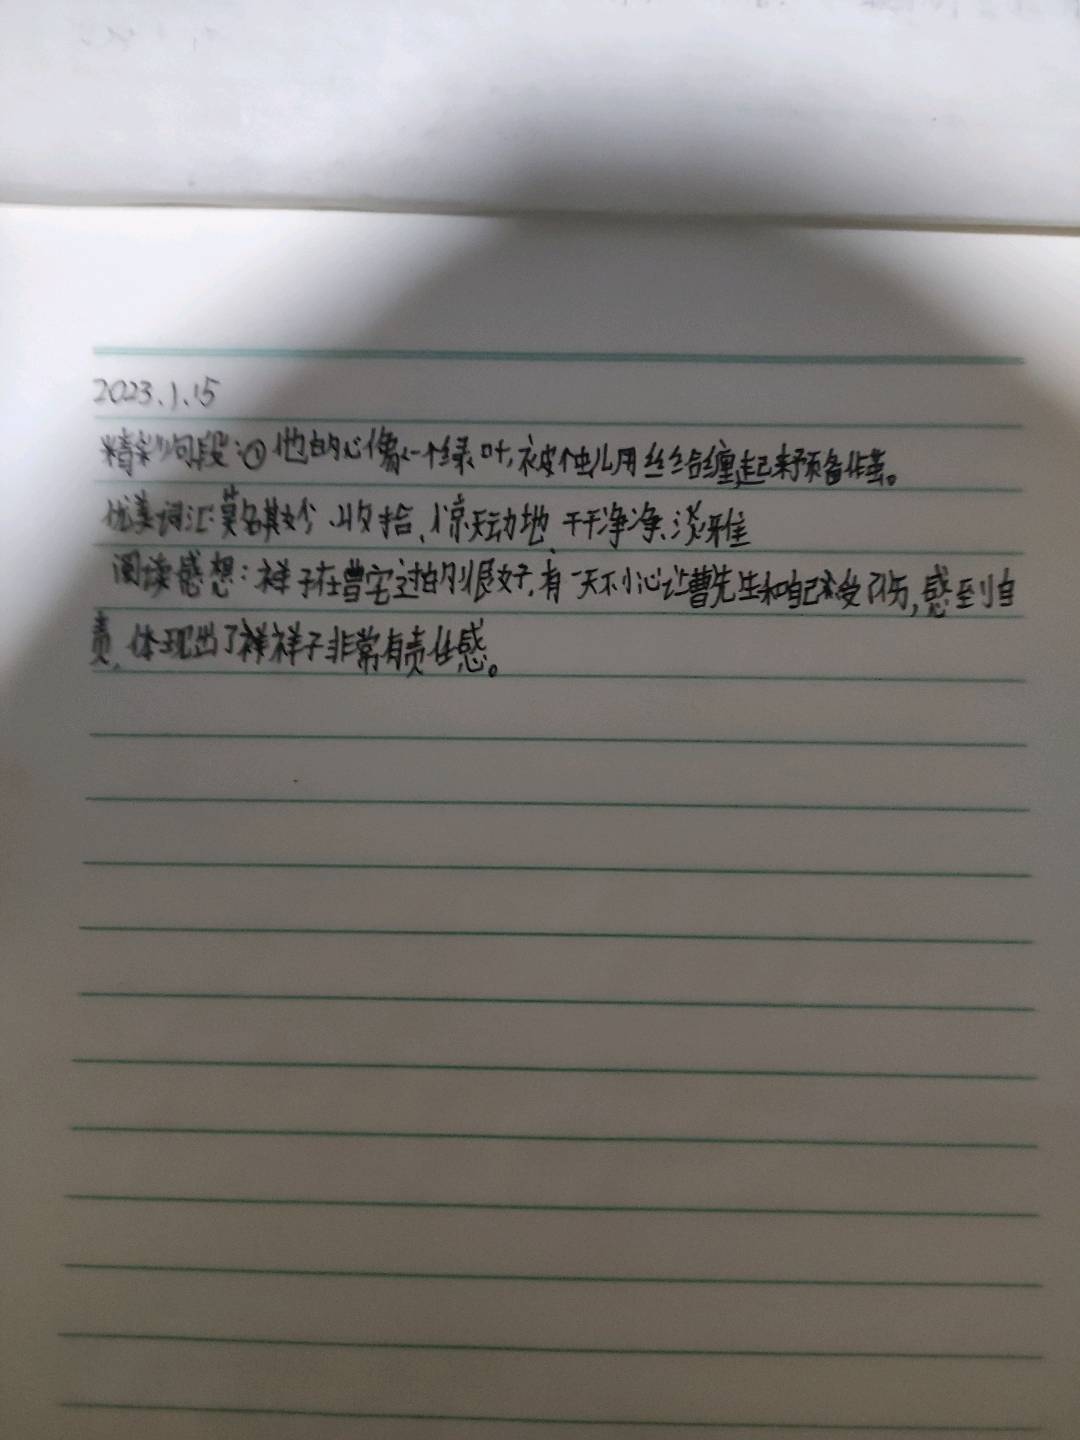 2023.1.15
精彩句段:①他的心像一个绿叶,被个虫儿用丝给缠起来预备作茧。
优美词汇:莫名其妙、收拾、惊天动地、干干净净、淡雅
阅读感想:祥子在曹宅过的很好,有一天不小心让曹先生和自己受了伤,感到自
责,体现出了祥子非常有责任感。